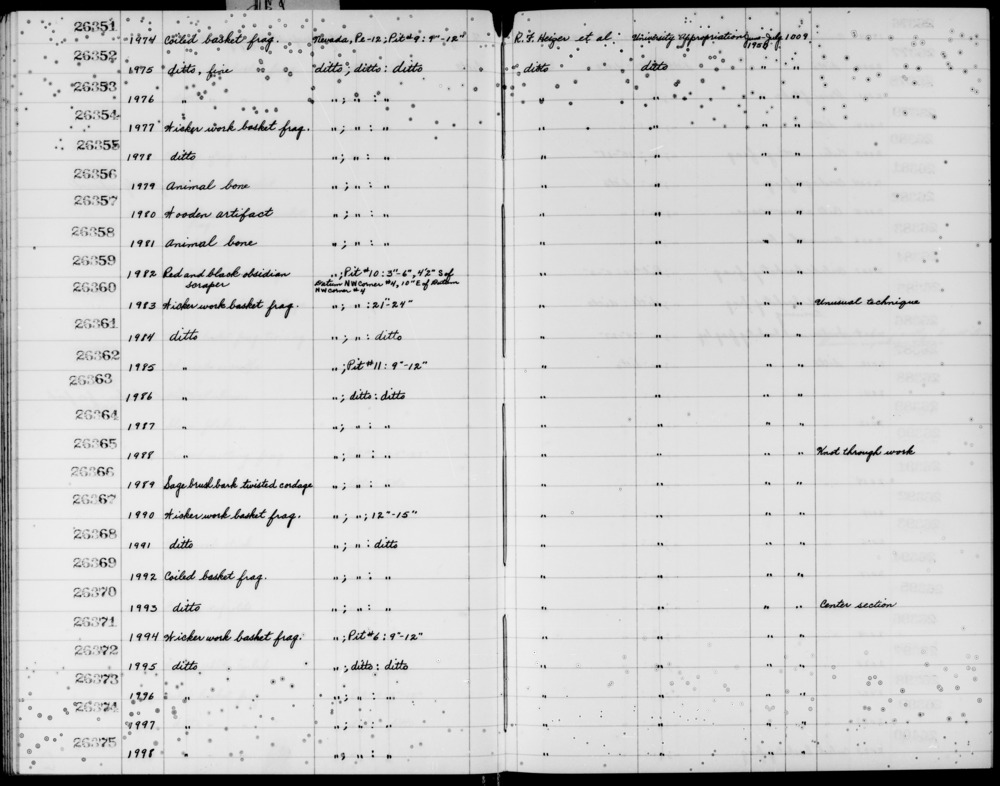 26351 1974 Coiled basket frag. Nevada, Pe-12; Pit #9: 9"-12" R. F. Heizer et al University Appropriations July 1950 1009
26352 1975 ditto, fine ditto; ditto: ditto ditto ditto " "
26353 1976 " "; " : " " " " "
26354 1977 Wicker work basket frag. "; " : " " " " "
26355 1978 ditto "; " : " " " " "
26356 1979 Animal bone "; " : " " " " "
26357 1980 Wooden artifact "; " : " " " " "
26358 1981 Animal bone "; " : " " " " "
26359 1982 Red and black obsidian "; Pit #10: 3"-6", 4'2" S of " " " "
scraper Datum NW Corner #4, 10" E of Datum
NW Corner #4
26360 1983 Wicker work basket frag. "; " : 21"-24" " " " " Unusual technique
26361 1984 ditto "; " : ditto " " " "
26362 1985 " "; Pit #11: 9"-12" " " " "
26363 1986 " "; ditto: ditto " " " "
26364 1987 " "; " : " " " " "
26365 1988 " "; " : " " " " " Knot through work
26366 1989 Sage brush bark twisted cordage "; " : " " " " "
26367 1990 Wicker work basket frag. "; "; 12"-15" " " " "
26368 1991 ditto "; " : ditto " " " "
26369 1992 Coiled basket frag. "; " : " " " " "
26370 1993 ditto "; " : " " " " " Center section
26371 1994 Wicker work basket frag. "; Pit #6: 9"-12" " " " "
26372 1995 ditto "; ditto: ditto " " " "
26373 1996 " "; " : " " " " "
26374 1997 " "; " : " " " " "
26375 1998 " "; " : " " " " "